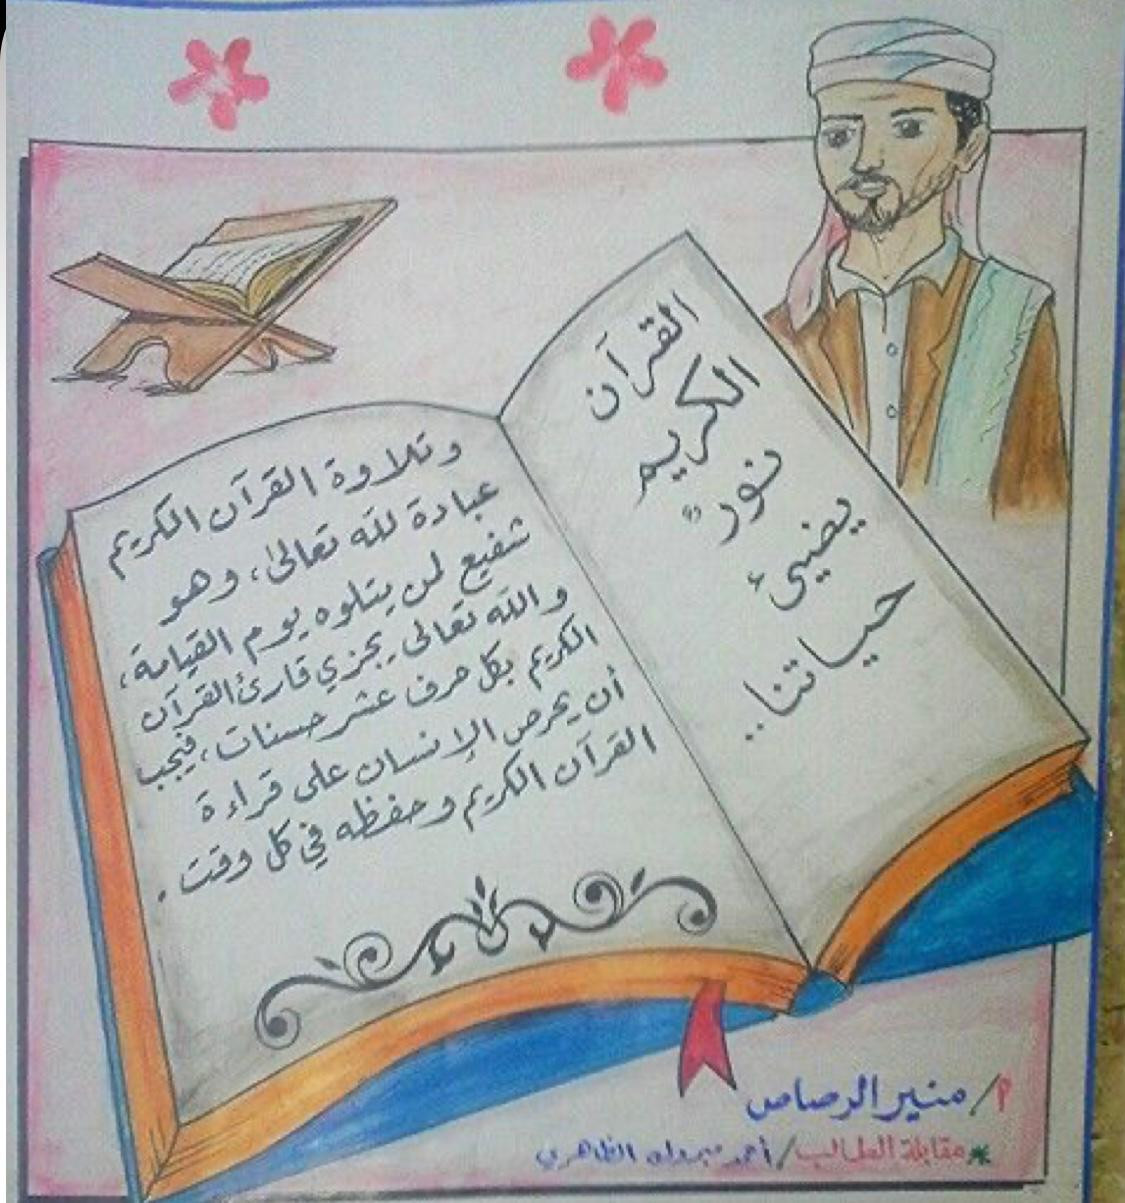 القرآن
الكريم
نورٌ
يضيئ
حياتنا..
وتلاوة القرآن الكريم
عبادة لله تعالىٰ، وهو
شفيع لمن يتلوه يوم القيامة،
والله تعالى يجزي قارئ القرآن
الكريم بكل حرف عشر حسنات، فيجب
أن يحرص الإنسان على قراءة
القرآن الكريم وحفظه في كل وقت.
م/ منير الرصاص
*مقابلة الطالب/ أحمد الظاهري